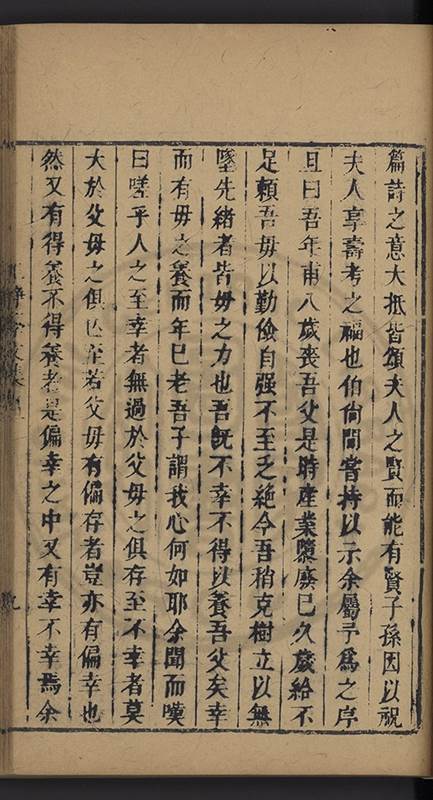 篇詩之意大抵皆頌夫人之賢而能有賢子孫因以祝
夫人享壽考之福也伯尚間嘗持以示余屬予爲之序
且曰吾年甫八歲喪吾父是時產業隳廢已久歲給不
足賴吾毋以勤儉自强不至乏絶今吾稍克樹立以無
墜先緒者皆毋之力也吾旣不幸不得以養吾父矣幸
而有毋之養而年已老吾子謂我心何如耶余聞而嘆
曰嗟乎人之至幸者無過於父毋之俱存至不幸者莫
大於父毋之俱亡至若父毋有偏存者豈亦有偏幸也
然又有得養不得養者是偏幸之中又有幸不幸焉余
九